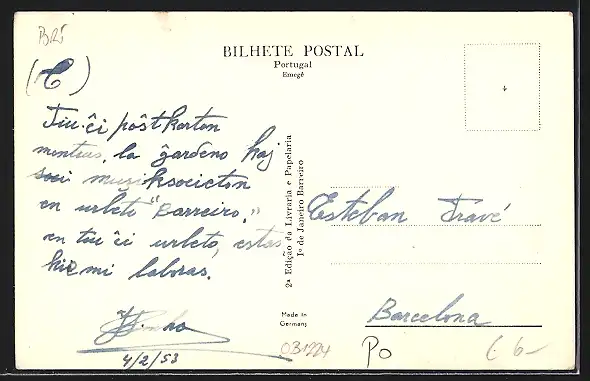 BRÍ
(C)
BILHETE POSTAL
Portugal
Emegê
Tiu-ĉi pôstkarton
montras, la ĝardeno kaj
muziksocieton
en urbeto "Barreiro,"
en tiu ĉi urbeto, estas
kie mi laboras.
4/2/53
2ª Edição da Livraria e Papelaria
1º de Janeiro Barreiro
Esteban Travé
Barcelona
Made in
Germany
031224
PO
€ 6-